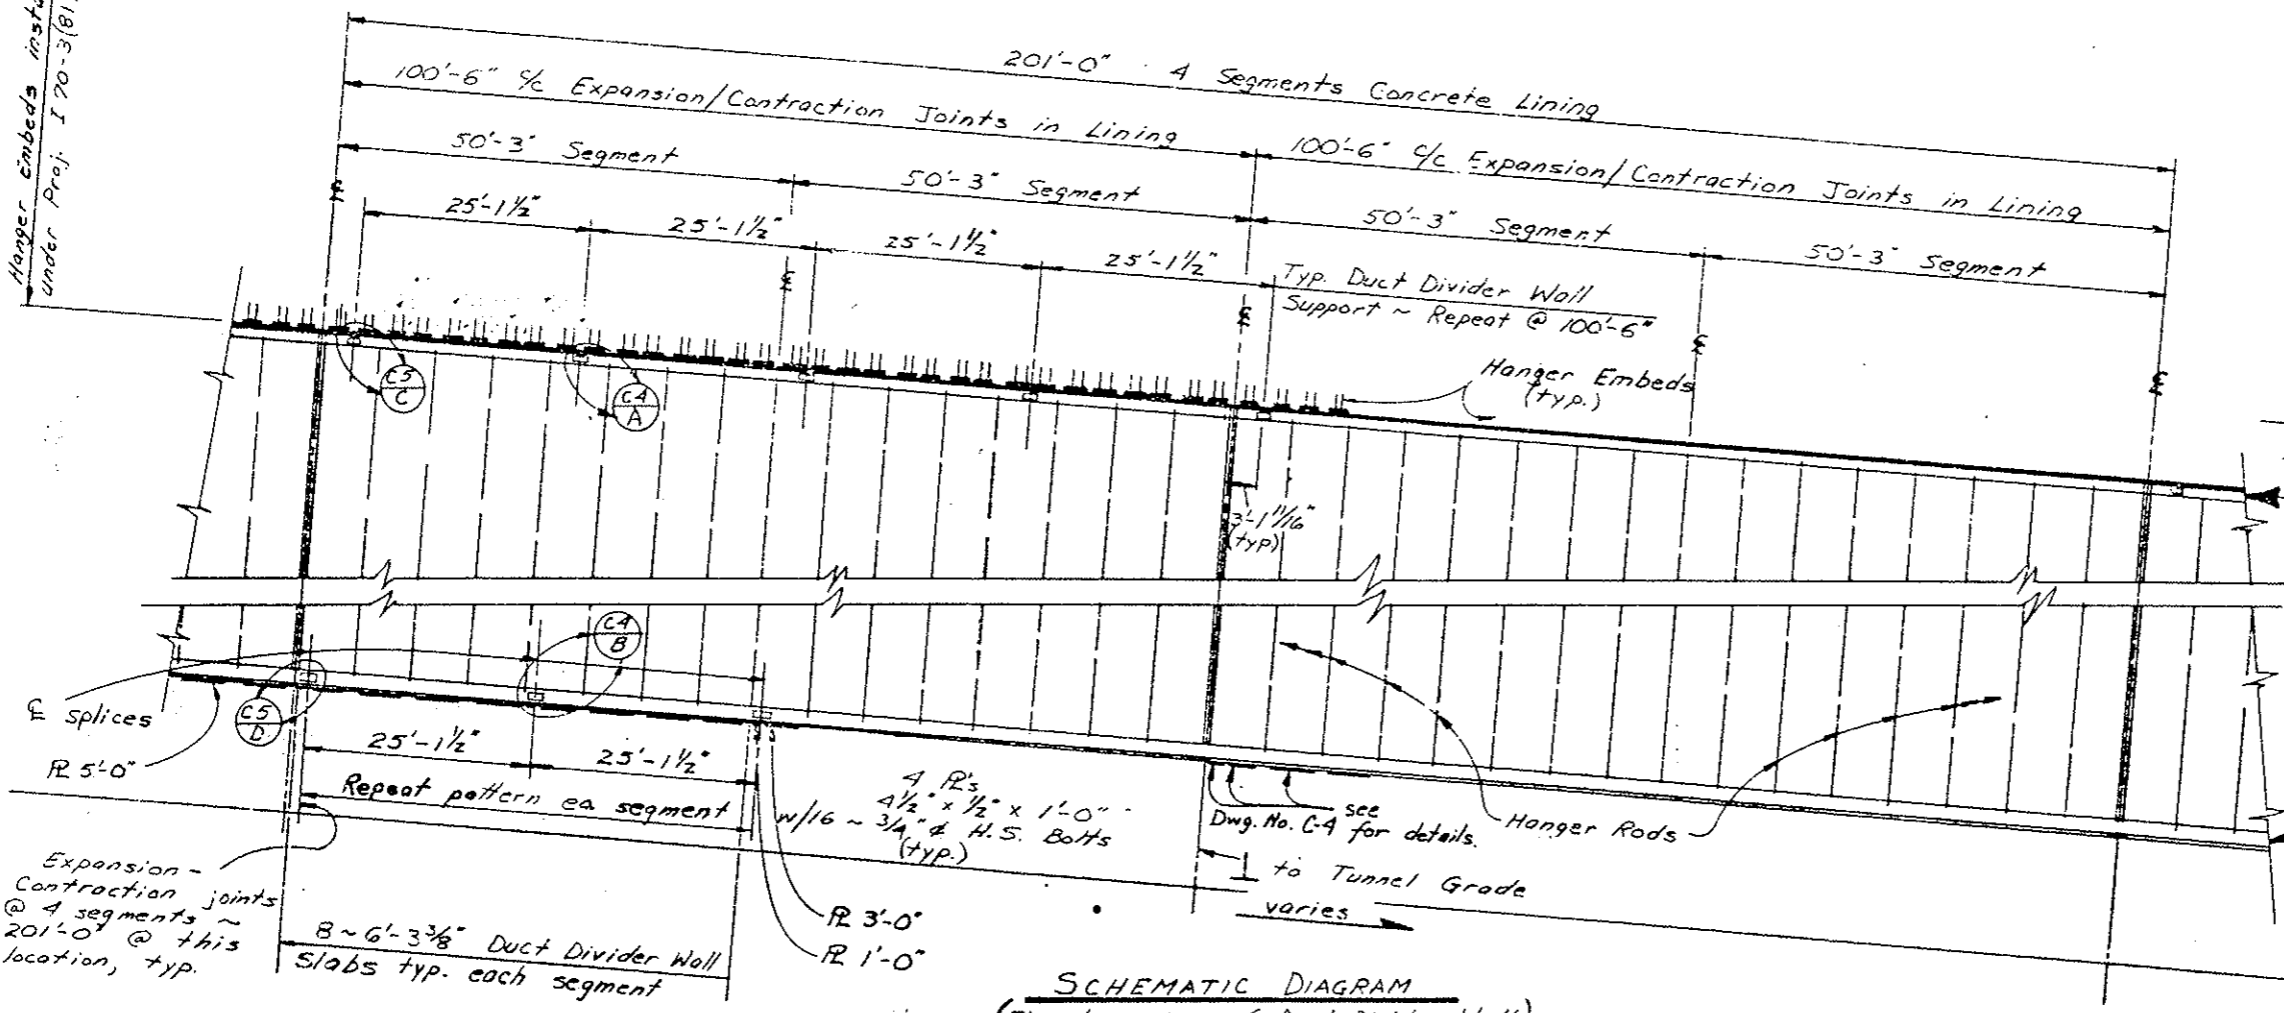 Hanger Embeds
under Proj. I 70-3(81
201'-0" 4 Segments Concrete Lining
100'-6" c/c Expansion/Contraction Joints in Lining
100'-6" c/c Expansion/Contraction Joints in Lining
50'-3" Segment
50'-3" Segment
50'-3" Segment
50'-3" Segment
25'-1½"
25'-1½"
25'-1½"
25'-1½"
Typ. Duct Divider Wall
Support ~ Repeat @ 100'-6"
Hanger Embeds
(typ.)
C5
C
C4
A
3'-1 11/16"
(typ)
C4
B
C5
D
℄ splices
PL 5'-0"
25'-1½"
25'-1½"
Repeat pattern ea segment
4 PL's
4½" x ½" x 1'-0"
w/16 ~ ¾" ϕ H.S. Bolts
(typ.)
see
Dwg. No. C-4 for details.
Hanger Rods
⊥ to Tunnel Grade
varies
Expansion -
Contraction joints
@ 4 segments ~
201'-0" @ this
location, typ.
8 ~ 6'-3⅜" Duct Divider Wall
Slabs typ. each segment
PL 3'-0"
PL 1'-0"
SCHEMATIC DIAGRAM